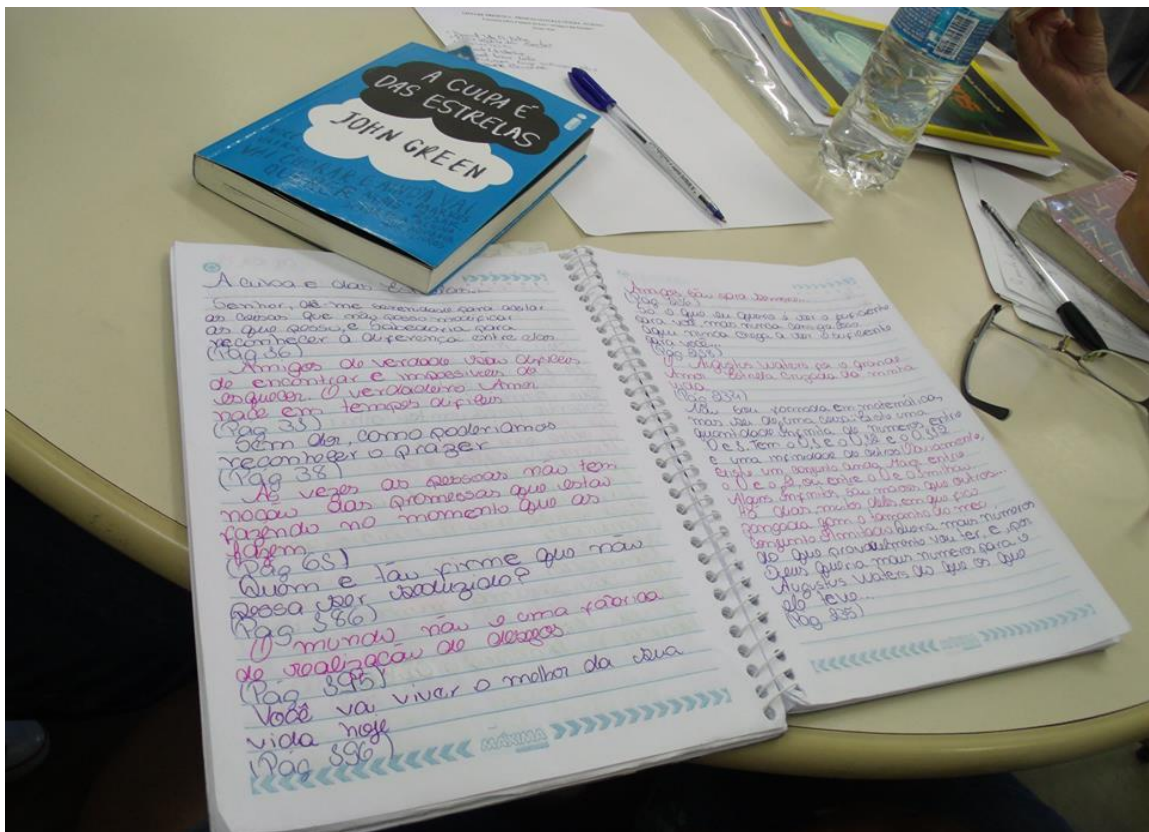 A CULPA É
DAS ESTRELAS
JOHN GREEN
A culpa e das
Senhor, dê-me serenidade para aceitar
as coisas que não posso modificar
as que posso, e Sabedoria para
reconhecer a diferença entre elas
(Pág 36)
Amigos de verdade são difíceis
de encontrar e impossíveis de
esquecer. O verdadeiro Amor
nace em tempos difíceis
(Pág 33)
Sem dor, como poderíamos
reconheçer o prazer
(Pág 38)
As vezes as pessoas não tem
noção das promessas que estão
fazendo no momento que as
fazem
(Pág 65)
Quem e tão firme que não
possa ser seduzido?
(Pág 386)
O mundo não e uma fábrica
de realização de desejos
(Pág 395)
Você vai viver o melhor da sua
vida hoje
(Pág 396)
MÁXIMA
Amigos são para sempre...
(Pág 226)
Só o que eu quero é ser o suficiente
para você, mas nunca consigo. Isso
aqui nunca chega a ser o suficiente
para você...
(Pág 238)
O Augustus Waters foi o grande
Amor estrela Cruzada da minha
vida
(Pág 234)
Não sou formada em matemática
mas sei de uma coisa: Existe uma
quantidade infinita de números entre
0 e 1. Tem o 0,1 e o 0,12 e o 0,112
e uma infinidade de outros. Obviamente,
existe um conjunto ainda maior entre
o 0 e o 2, ou entre o 0 e o 1 milhão.
Alguns infinitos são maiores que outros...
Há dias, muitos deles, em que fico
zangada com o tamanho do meu
conjunto ilimitado. Queria mais números
do que provavelmente vou ter, e por
Deus queria mais números para o
Augustus Waters do que os que
ele teve...
(Pág 235)
MÁXIMA